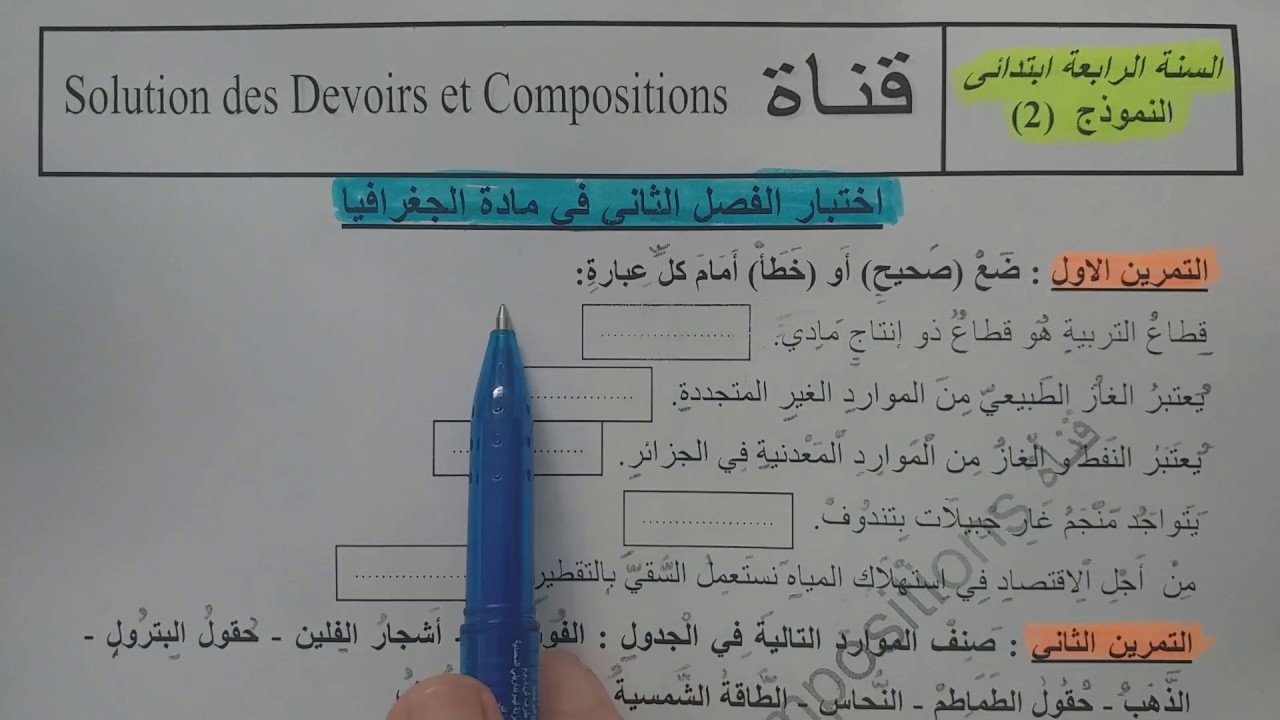 السنة الرابعة ابتدائي
النموذج (2)
قناة Solution des Devoirs et Compositions
اختبار الفصل الثاني في مادة الجغرافيا
التمرين الاول : ضَعْ (صَحيحِ) أَو (خَطَأْ) أَمَامَ كلِّ عِبارةِ:
قِطاعُ التربيةِ هُو قطاعُ ذو إنتاجٍ مَادِي.
يُعتبرُ الغازُ الطَبيعيّ مِنَ المواردِ الغيرِ المتجددةِ.
يُعتَبَرُ النَفط و الغازُ مِن المَوارِد المَعْدنيةِ فِي الجزائرِ.
يَتَواجَدُ مَنْجَمُ غَارِ جَبِيلَات بِتندُوفْ.
مِنْ أَجْلِ الاقتصادِ فِي استهلَاك المياهِ نستَعمِلُ السَّقيَّ بِالتقطيرِ
التمرين الثاني : صَنفْ المواردَ التاليةَ في الْجدولِ : - أَشجارُ الفِلين - حُقولُ البِترُولٍ -
الذَّهَبْ - حُقُولُ الطَمَاطِمْ - النُحاسْ - الطَّاقةُ الشَّمسيةُ
قناة
ompositions